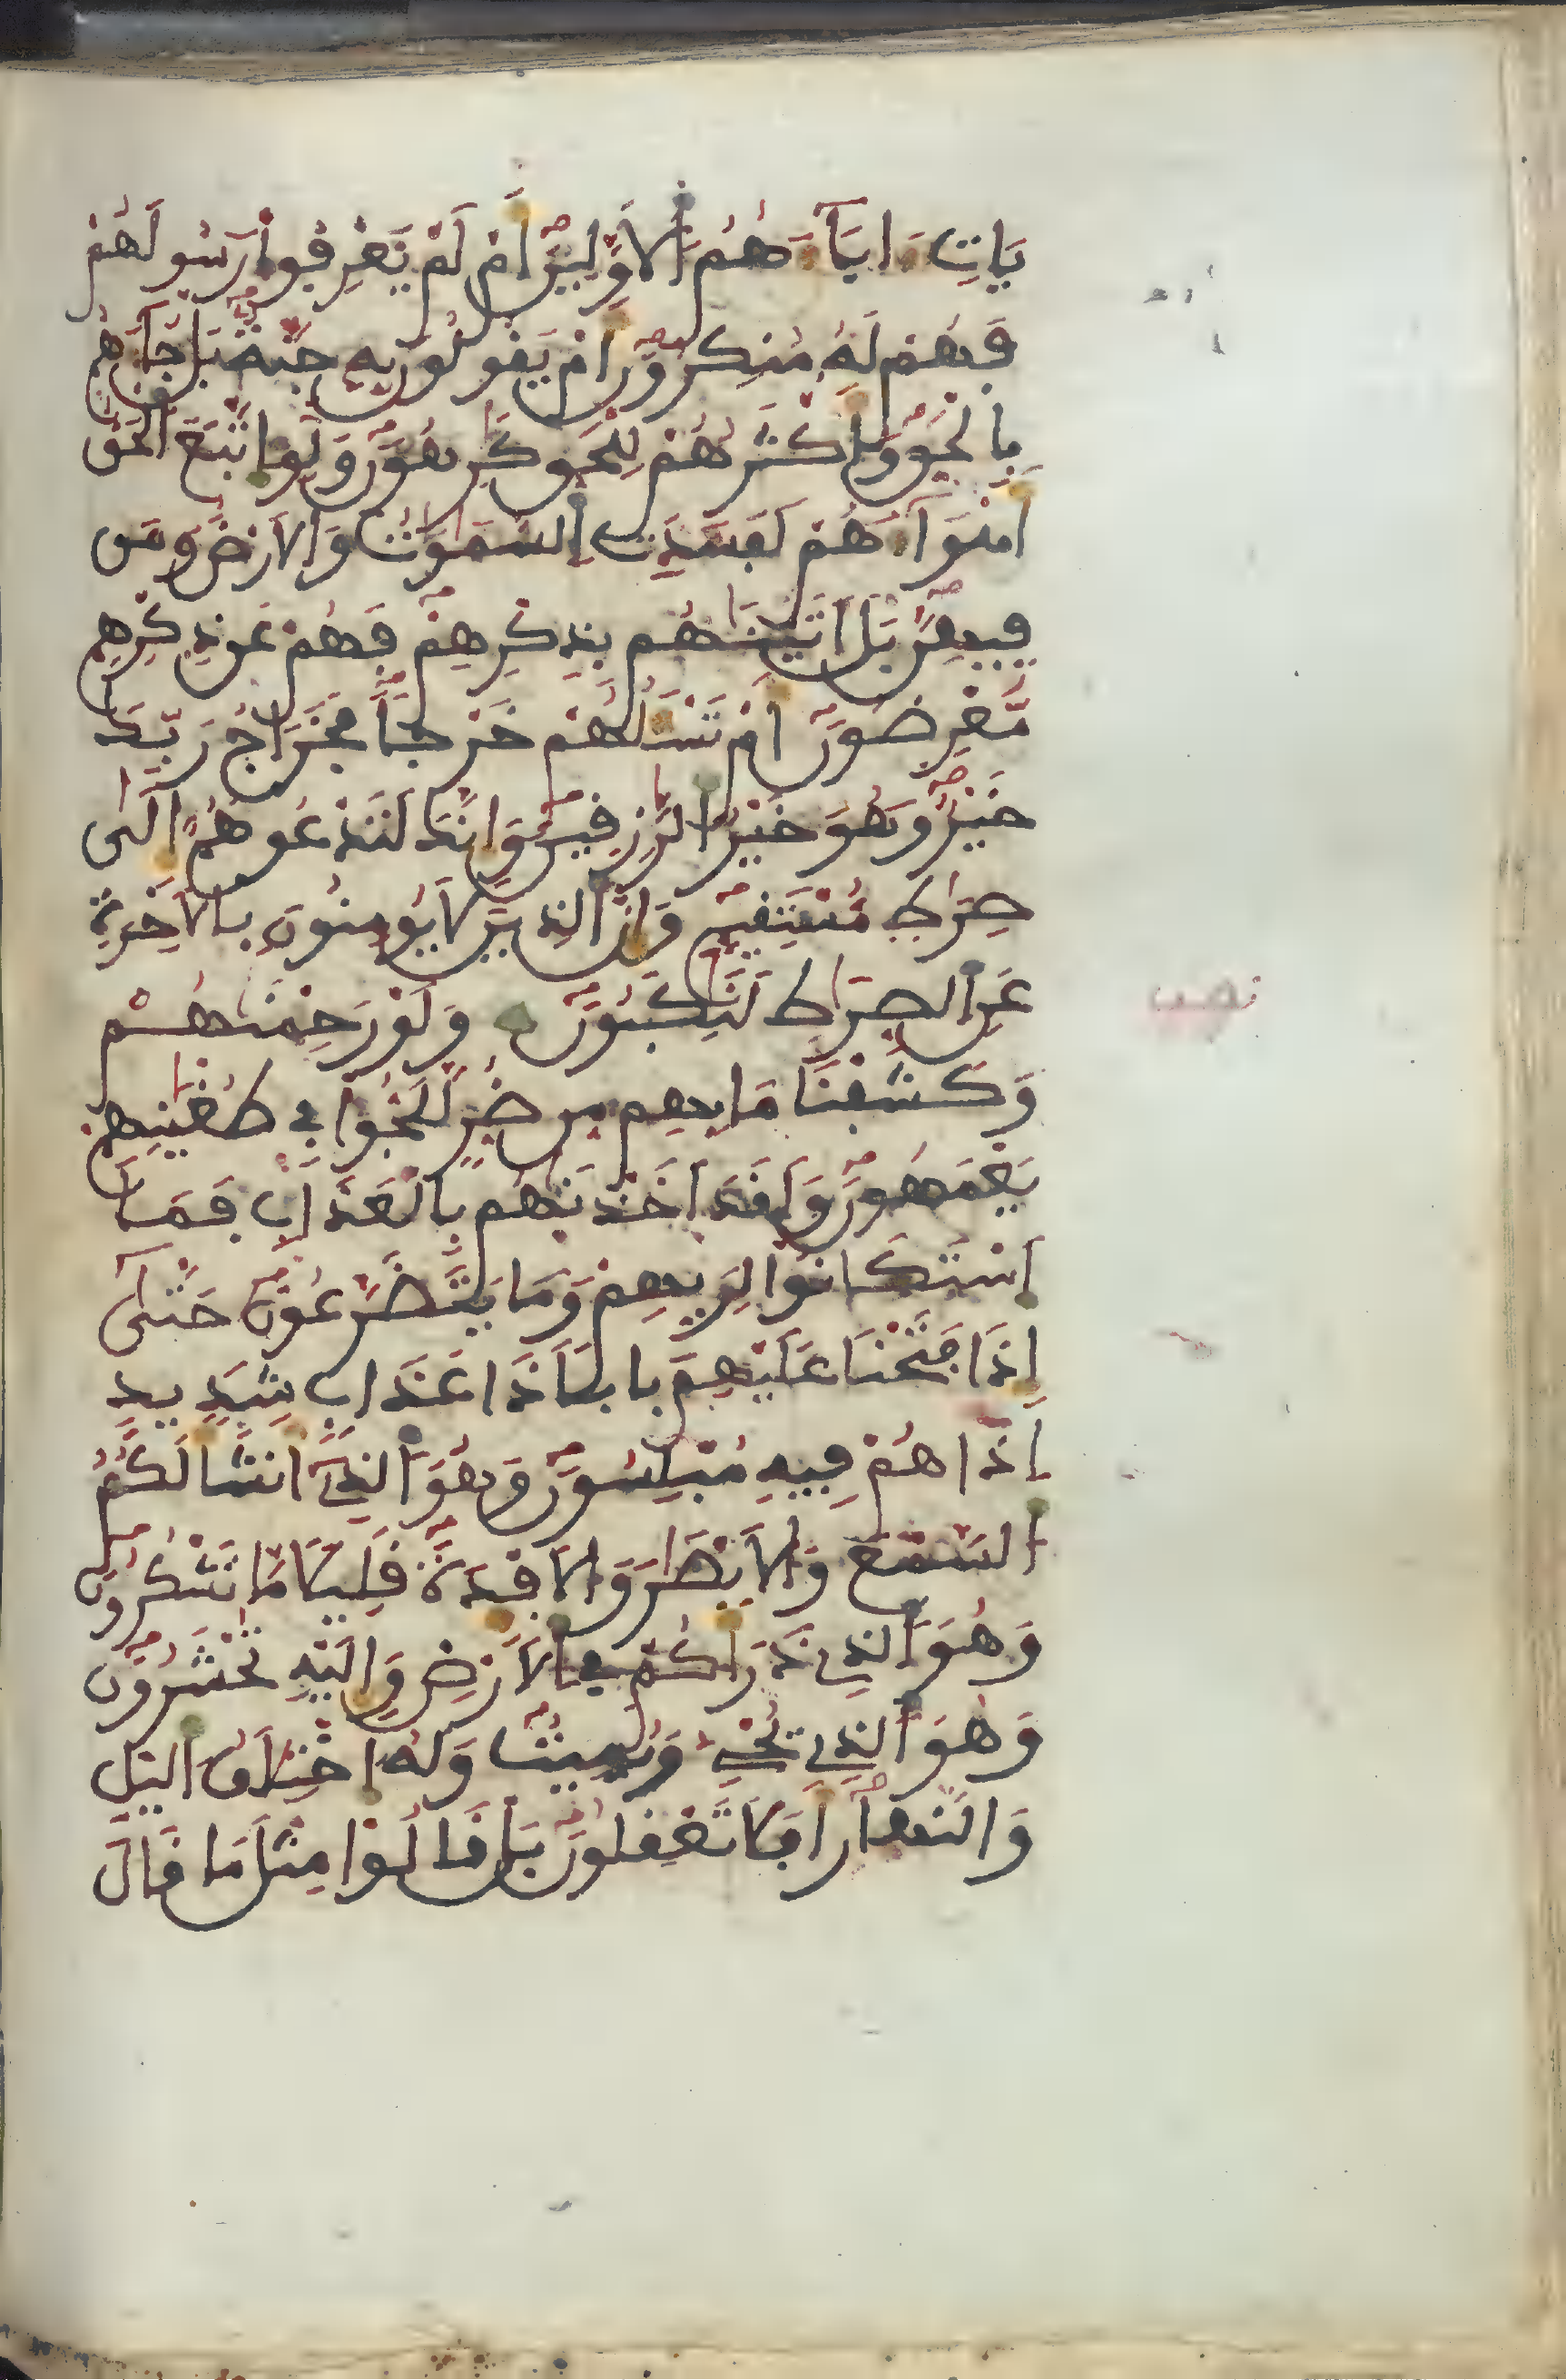 يَاتِ ءَابَآءَهُمُ الَاوَّلِينَ أَمْ لَمْ يَعْرِفُواْ رَسُولَهُمْ
فَهُمْ لَهُ مُنكِرُونَ أَمْ يَقُولُونَ بِهِ جِنَّةٌ بَلْ جَآءَهُم
بِالْحَقِّ وَأَكْثَرُهُمْ لِلْحَقِّ كَٰرِهُونَ وَلَوِ اتَّبَعَ الْحَقُّ
أَهْوَآءَهُمْ لَفَسَدَتِ السَّمَٰوَٰتُ وَالَارْضُ وَمَن
فِيهِنَّ بَلَ اَتَيْنَٰهُم بِذِكْرِهِمْ فَهُمْ عَن ذِكْرِهِم
مُّعْرِضُونَ أَمْ تَسْـَٔلُهُمْ خَرْجاً فَخَرَاجُ رَبِّكَ
خَيْرٌ وَهُوَ خَيْرُ الرَّٰزِقِينَ وَإِنَّكَ لَتَدْعُوهُمُ إِلَىٰ
صِرَٰطٍ مُّسْتَقِيمٍ وَإِنَّ الذِينَ لَا يُومِنُونَ بِالَاخِرَةِ
عَنِ الصِّرَٰطِ لَنَٰكِبُونَ وَلَوْ رَحِمْنَٰهُمْ
وَكَشَفْنَا مَا بِهِم مِّن ضُرٍّ لَّلَجُّواْ فِي طُغْيَٰنِهِمْ
يَعْمَهُونَ وَلَقَدَ اَخَذْنَٰهُم بِالْعَذَابِ فَمَا
اَسْتَكَانُواْ لِرَبِّهِمْ وَمَا يَتَضَرَّعُونَ حَتَّىٰ
إِذَا فَتَحْنَا عَلَيْهِم بَاباً ذَا عَذَابٍ شَدِيدٍ
اِذَا هُمْ فِيهِ مُبْلِسُونَ وَهُوَ الذِي أَنشَأَ لَكُمُ
السَّمْعَ وَالَابْصَٰرَ وَالَافْـِٔدَةَ قَلِيلاً مَّا تَشْكُرُونَ
وَهُوَ الذِي ذَرَأَكُمْ فِي الَارْضِ وَإِلَيْهِ تُحْشَرُونَ
وَهُوَ الذِي يُحْيِ وَيُمِيتُ وَلَهُ اخْتِلَٰفُ اليْلِ
وَالنَّهارِ أَفَلَا تَعْقِلُونَ بَلْ قَالُواْ مِثْلَ مَا قَالَ
نصف